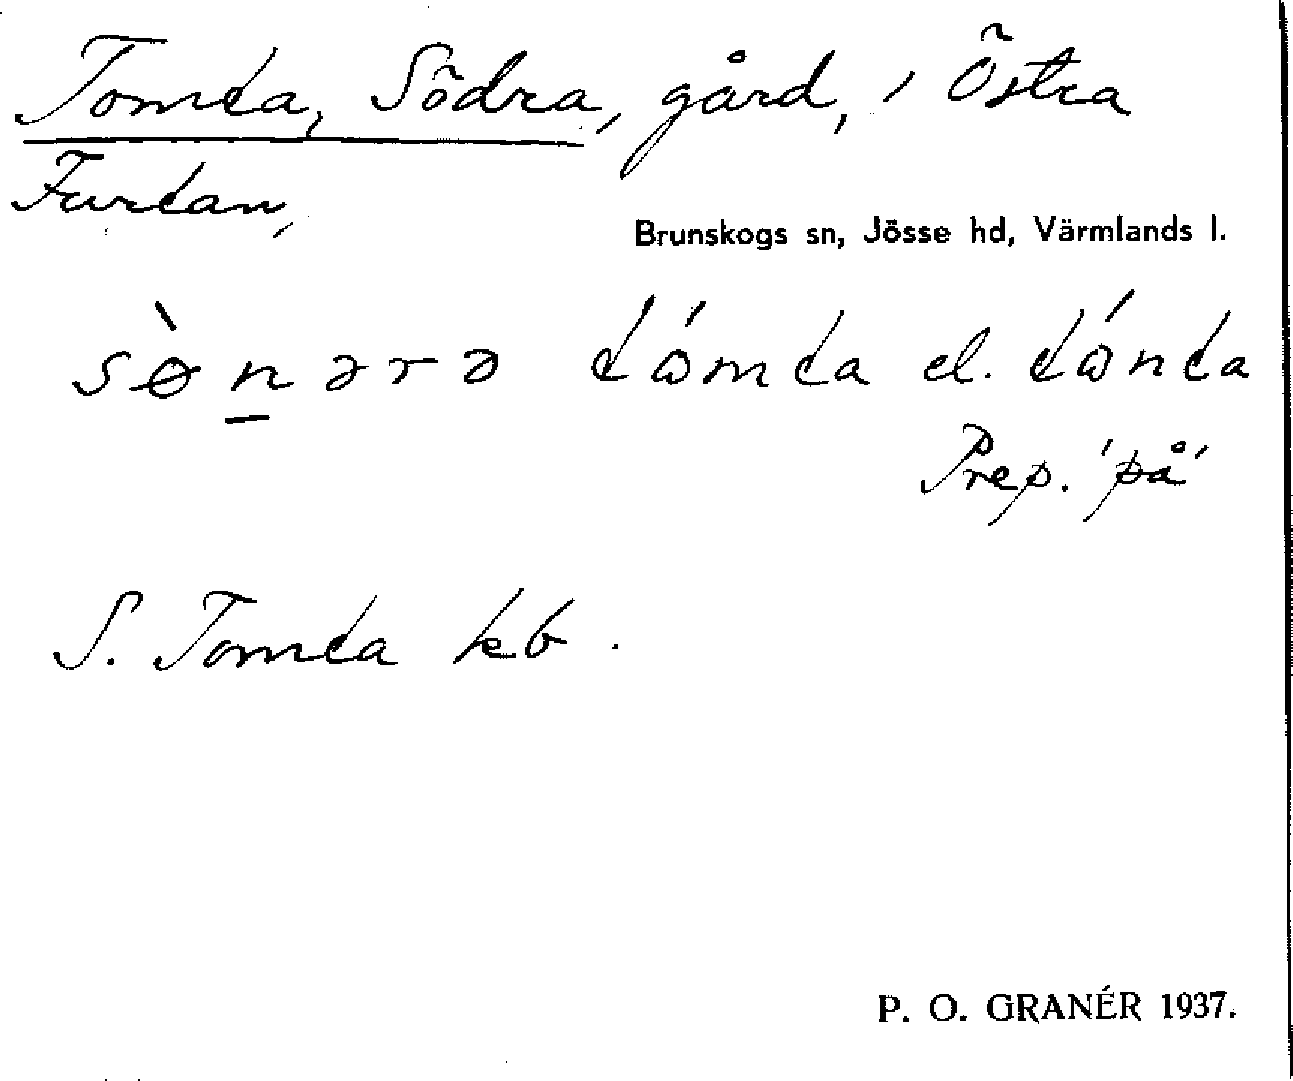 Tomta, Södra, gård, i Östra
Furtan,
Brunskogs sn, Jösse hd, Värmlands l.
sø̀n̲ərə tώmta el. tώnta
Prep. 'på'
S. Tomta kb.
P. O. GRANÉR 1937.